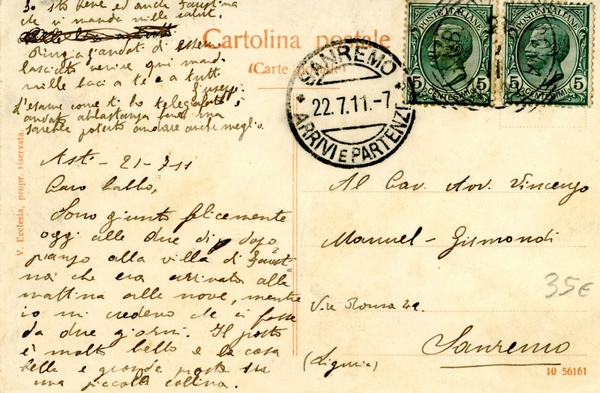 Io sto bene ed anche Faustina
che vi manda mille saluti.
Ringrazia l'andati di essere
lasciati venire qui mand
mille baci a te e a tutti
Giuseppe
D'esame come ti ho telegrafato è
andato abbastanza bene ma
sarebbe potuto andare anche meglio.
Cartolina postale
(Carte
SANREMO
22.7.11.-7
ARRIVI E PARTENZE
POSTE ITALIANE
5 CENTESIMI 5
POSTE ITALIANE
5 CENTESIMI 5
V. Ecclesia, propr. riservata.
Asti - 21-7-11
Caro babbo,
Sono giunto felicemente
oggi alle due di dopo
pranzo alla villa di Faust
che era arrivata alla
mattina alle nove, mentre
io mi credevo che ci fosse
da due giorni. Il posto
è molto bello e la casa
bella e grande posta su
una piccola collina.
Al Cav. Avv. Vincenzo
Manuel - Gismondi
Via Roma
Sanremo
(Liguria)
35€
10 56161